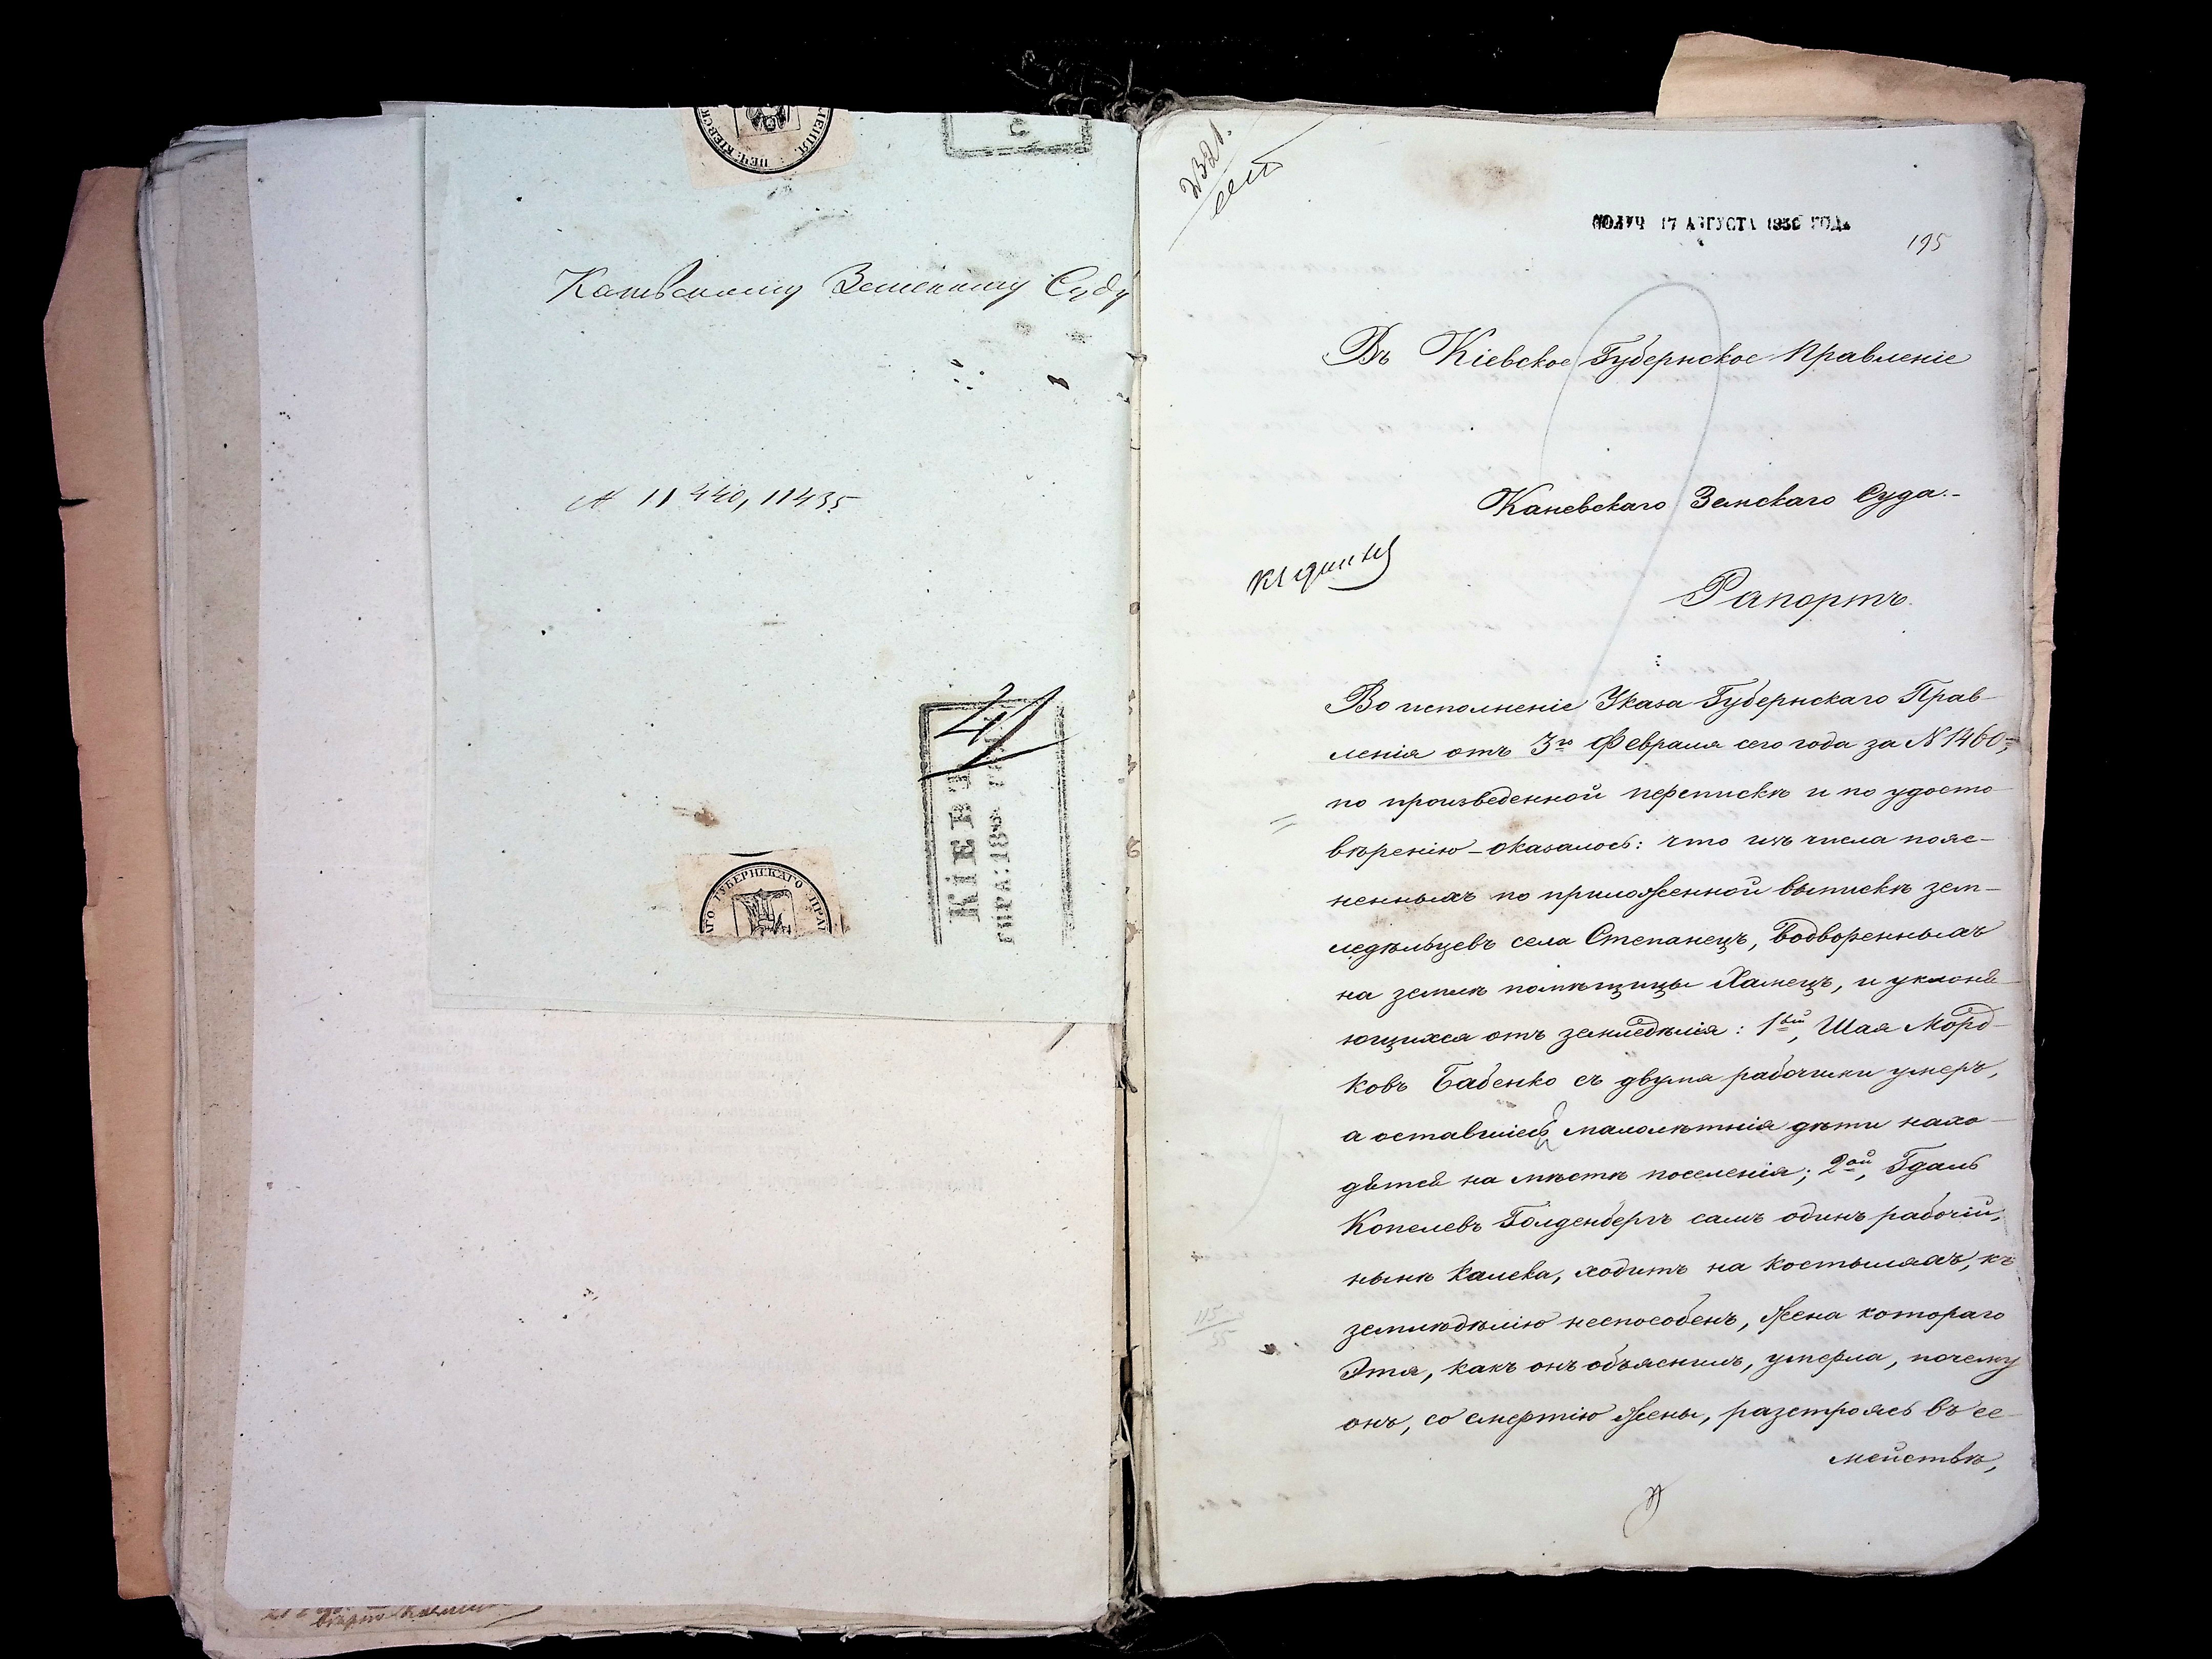 ЛЕНІЯ. ПЕЧ. КІЕВСК
С
Каневскому Земскому Суду
№ 11440, 11435
41
КІЕВЪ
АГО ГУБЕРНСКАГО ПРАВ
2321.
ПОЛУЧ 17 АВГУСТА 1856 ГОДА
195
Въ Кіевское Губернское Правленіе
Каневскаго Земскаго Суда.-
Рапортъ.
Во исполненіе Указа Губернскаго Прав-
ленія отъ 3го Февраля сего года за N 1460,
по произведенной перепискѣ и по удосто-
вѣренію - оказалось: что изъ числа пояс-
ненныхъ по приложенной выпискѣ зем-
ледѣльцевъ села Степанецъ, водворенныхъ
на землѣ помѣщицы Хамецъ, и уклоня-
ющихся отъ земледѣлія: 1вый, Шая Морд-
ковъ Бабенко съ двумя рабочими умеръ,
а оставшіесь малолѣтнія дѣти нахо-
дятся на мѣстѣ поселенія; 2ой, Гдаль
Копелевъ Голденбергъ самъ одинъ рабочій,
нынѣ калека, ходитъ на костыляхъ, къ
земледѣлію неспособенъ, жена котораго
Этя, какъ онъ объяснилъ, умерла, почему
онъ, со смертію жены, разстроясь въ се-
мействѣ,
115
55